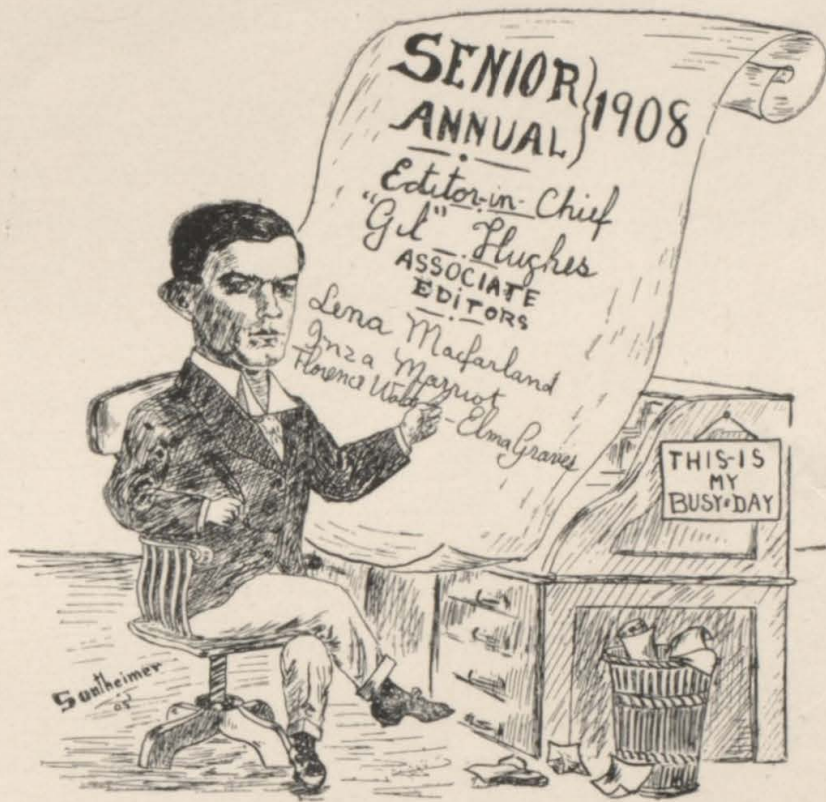 SENIOR
ANNUAL } 1908
Editor-in-Chief
"Gil" Hughes
ASSOCIATE
EDITORS
Lena Macfarland
Inza Marriot
Florence — Elma Graves
THIS-IS
MY
BUSY-DAY
Sontheimer